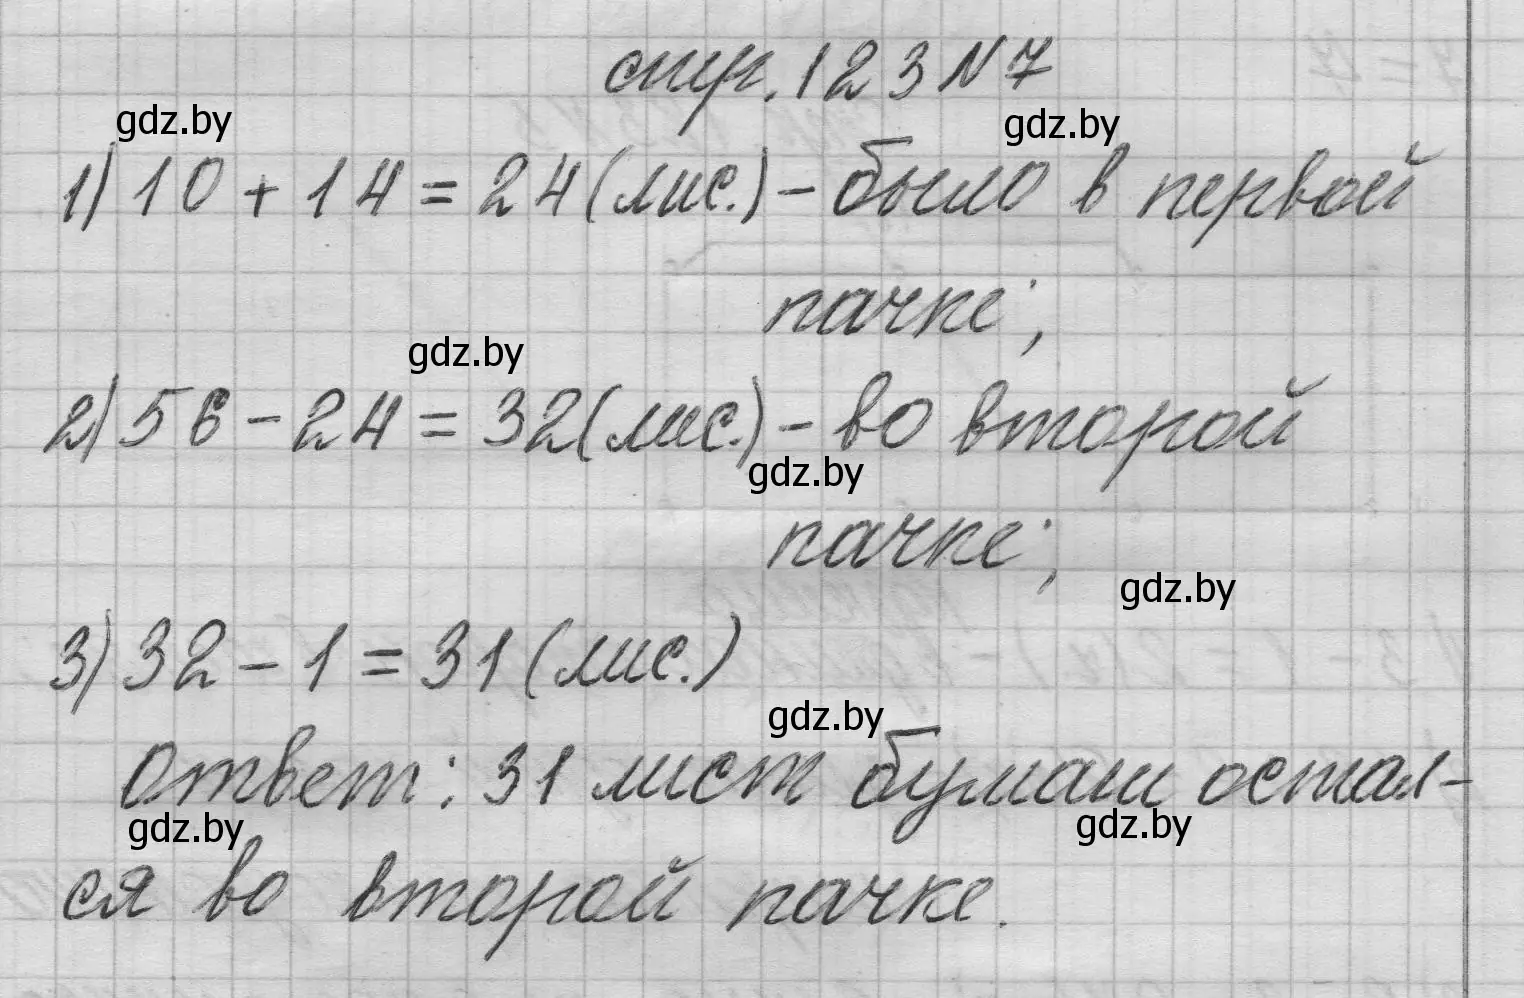 стр. 123 N 7
gdz.by
gdz.by
1) 10 + 14 = 24 (лис.) - было в первой
пачке;
gdz.by
2) 56 - 24 = 32 (лис.) - во второй
gdz.by
пачке;
gdz.by
3) 32 - 1 = 31 (лис.)
gdz.by
ответ: 31 лист бумаги остал-
gdz.by
gdz.by
ся во второй пачке.